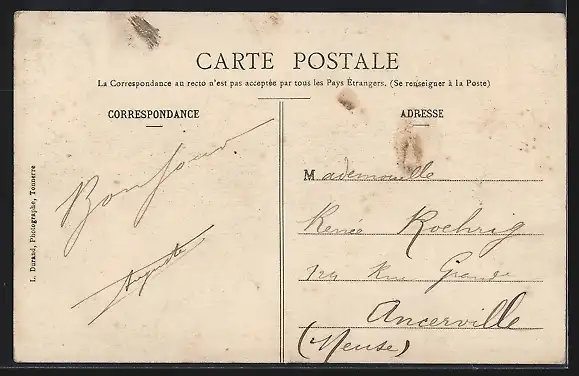 CARTE POSTALE
La Correspondance au recto n'est pas acceptée par tous les Pays Étrangers. (Se renseigner à la Poste)
CORRESPONDANCE
ADRESSE
L. Durand, Photographe, Tonnerre
Bonjour
Auguste
Mademoiselle
Renée Roehrig
129 Rue Grande
Ancerville
(Meuse)